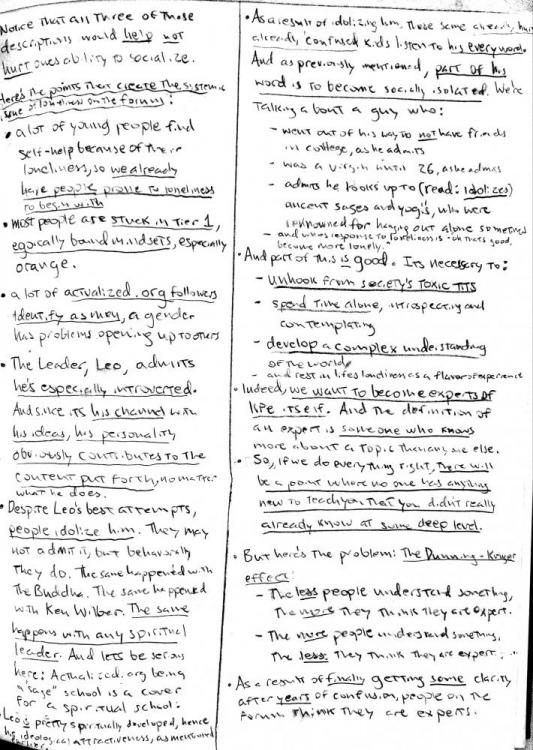 Notice that all three of those
descriptions would help not
hurt ones ability to socialize.
Here's the points that create the systemic
issue of loneliness on the forum:
• a lot of young people find
self-help because of their
loneliness, so we already
have people prone to loneliness
to begin with
• most people are stuck in tier 1,
egoically bound mindsets, especially
orange.
• a lot of actualized.org followers
identify as men, a gender
has problems opening up to others
• The leader, Leo, admits
he's especially introverted.
And since its his channel with
his ideas, his personality
obviously contributes to the
content put forth, no matter
what he does.
• Despite Leo's best attempts,
people idolize him. They may
not admit it, but behaviorally
they do. The same happened with
the Buddha. The same happened
with Ken Wilber. The same
happens with any spiritual
leader. And lets be serious
here: Actualized.org being
a "sage" school is a cover
for a spiritual school.
• Leo is pretty spiritually developed, hence
his ideological attractiveness, as mentioned
• As a result of idolizing him, those same already, hurt
already, confused kids listen to his every word.
And as previously mentioned, part of his
word is to become socially isolated. We're
talking about a guy who:
- went out of his way to not have friends
in college, as he admits
- was a virgin until 26, as he admits
- admits he looks up to (read: idolizes)
ancient sages and yogis, who were
renowned for hanging out alone sometimes
- and whos response to loneliness is "oh thats good,
become more lonely."
• And part of this is good. Its necessary to:
- unhook from society's toxic tits
- spend time alone, introspecting and
contemplating
- develop a complex understanding
of the world
- and rest in lifes loneliness as a flavor of experience
• Indeed, we want to become experts of
life itself. And the definition of
an expert is someone who knows
more about a topic than anyone else.
• So, if we do everything right, there will
be a point where no one has anything
new to teach you that you didn't really
already know at some deep level.
• But here's the problem: The Dunning-Kruger
effect:
- The less people understand something,
the more they think they are expert.
- The more people understand something,
the less they think they are expert.
• As a result of finally getting some clarity
after years of confusion, people on the
forum think they are experts.